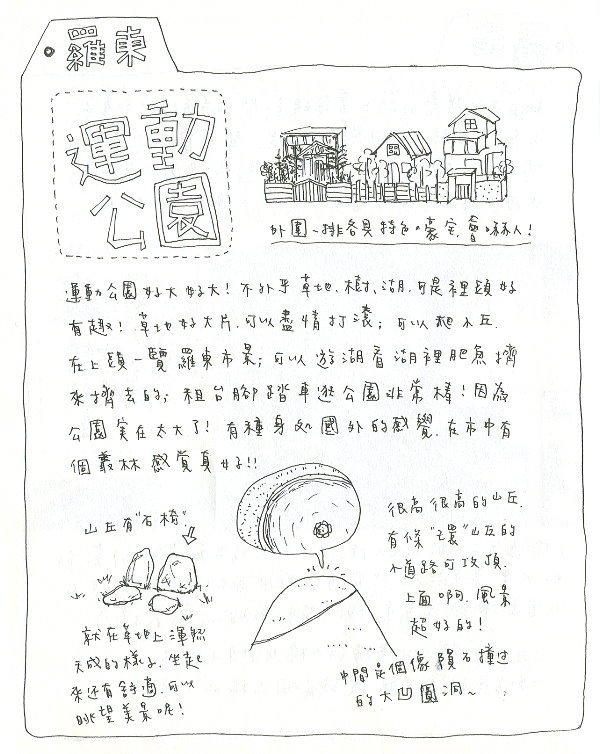 羅東
運動
公園
外圍一排各具特色の豪宅,會嚇人!
運動公園好大好大!不外乎草地、樹、湖,可是裡頭好
有趣!草地好大片,可以盡情打滾;可以爬小丘,
在上頭一覽羅東市景;可以遊湖看湖裡肥魚擠
來擠去的;租台腳踏車逛公園非常棒!因為
公園實在太大了!有種身如國外的感覺,在市中有
個叢林感覺真好!!
山丘有"石椅"
就在草地上渾然
天成的樣子,坐起
來還有舒適,可以
眺望美景呢!
很高很高的山丘,
有條"環"山丘的
小道路可攻頂,
上面啊,風景
超好的!
中間是個像隕石撞過
的大凹圓洞~